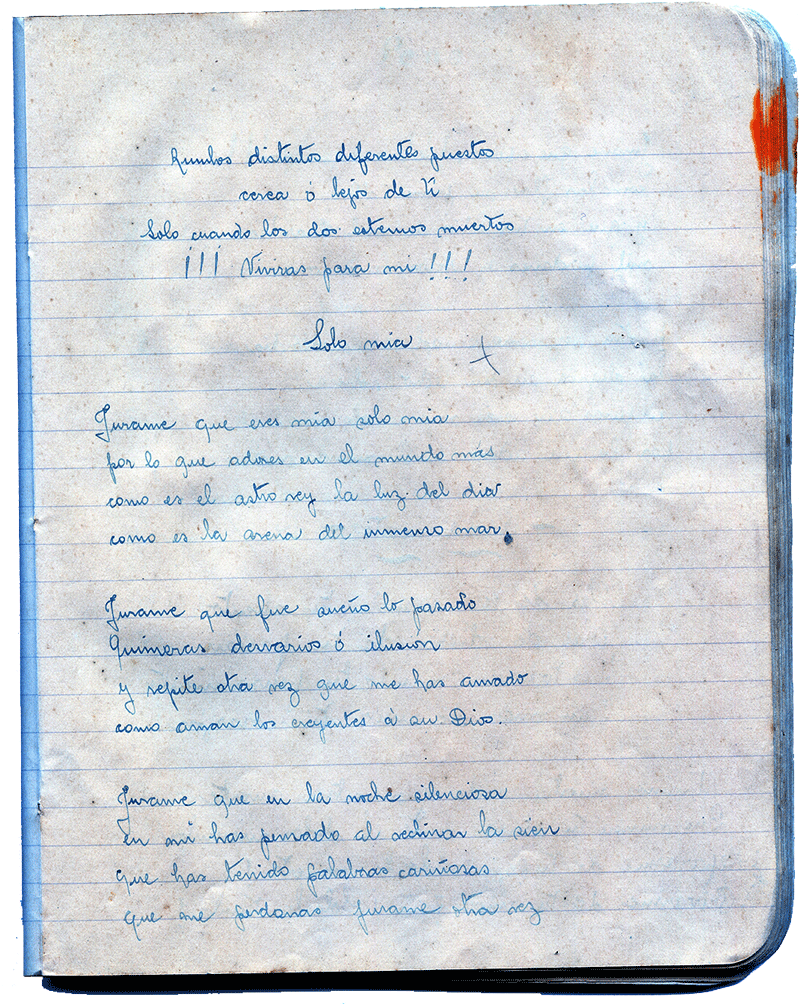 Rumbos distintos diferentes puestos
cerca ó lejos de tí
Solo cuando los dos estemos muertos
¡¡¡ Viviras para mi !!!
Solo mia
Jurame que eres mia solo mia
por lo que adores en el mundo más
como es el astro rey la luz del dia
como es la arena del inmenso mar.
Jurame que fue sueño lo pasado
Quimeras desvarios ó ilusión
y repite otra vez que me has amado
como aman los creyentes á su Dios.
Jurame que en la noche silenciosa
en mi has pensado al reclinar la sien
que has tenido palabras cariñosas
que me perdonas jurame otra vez